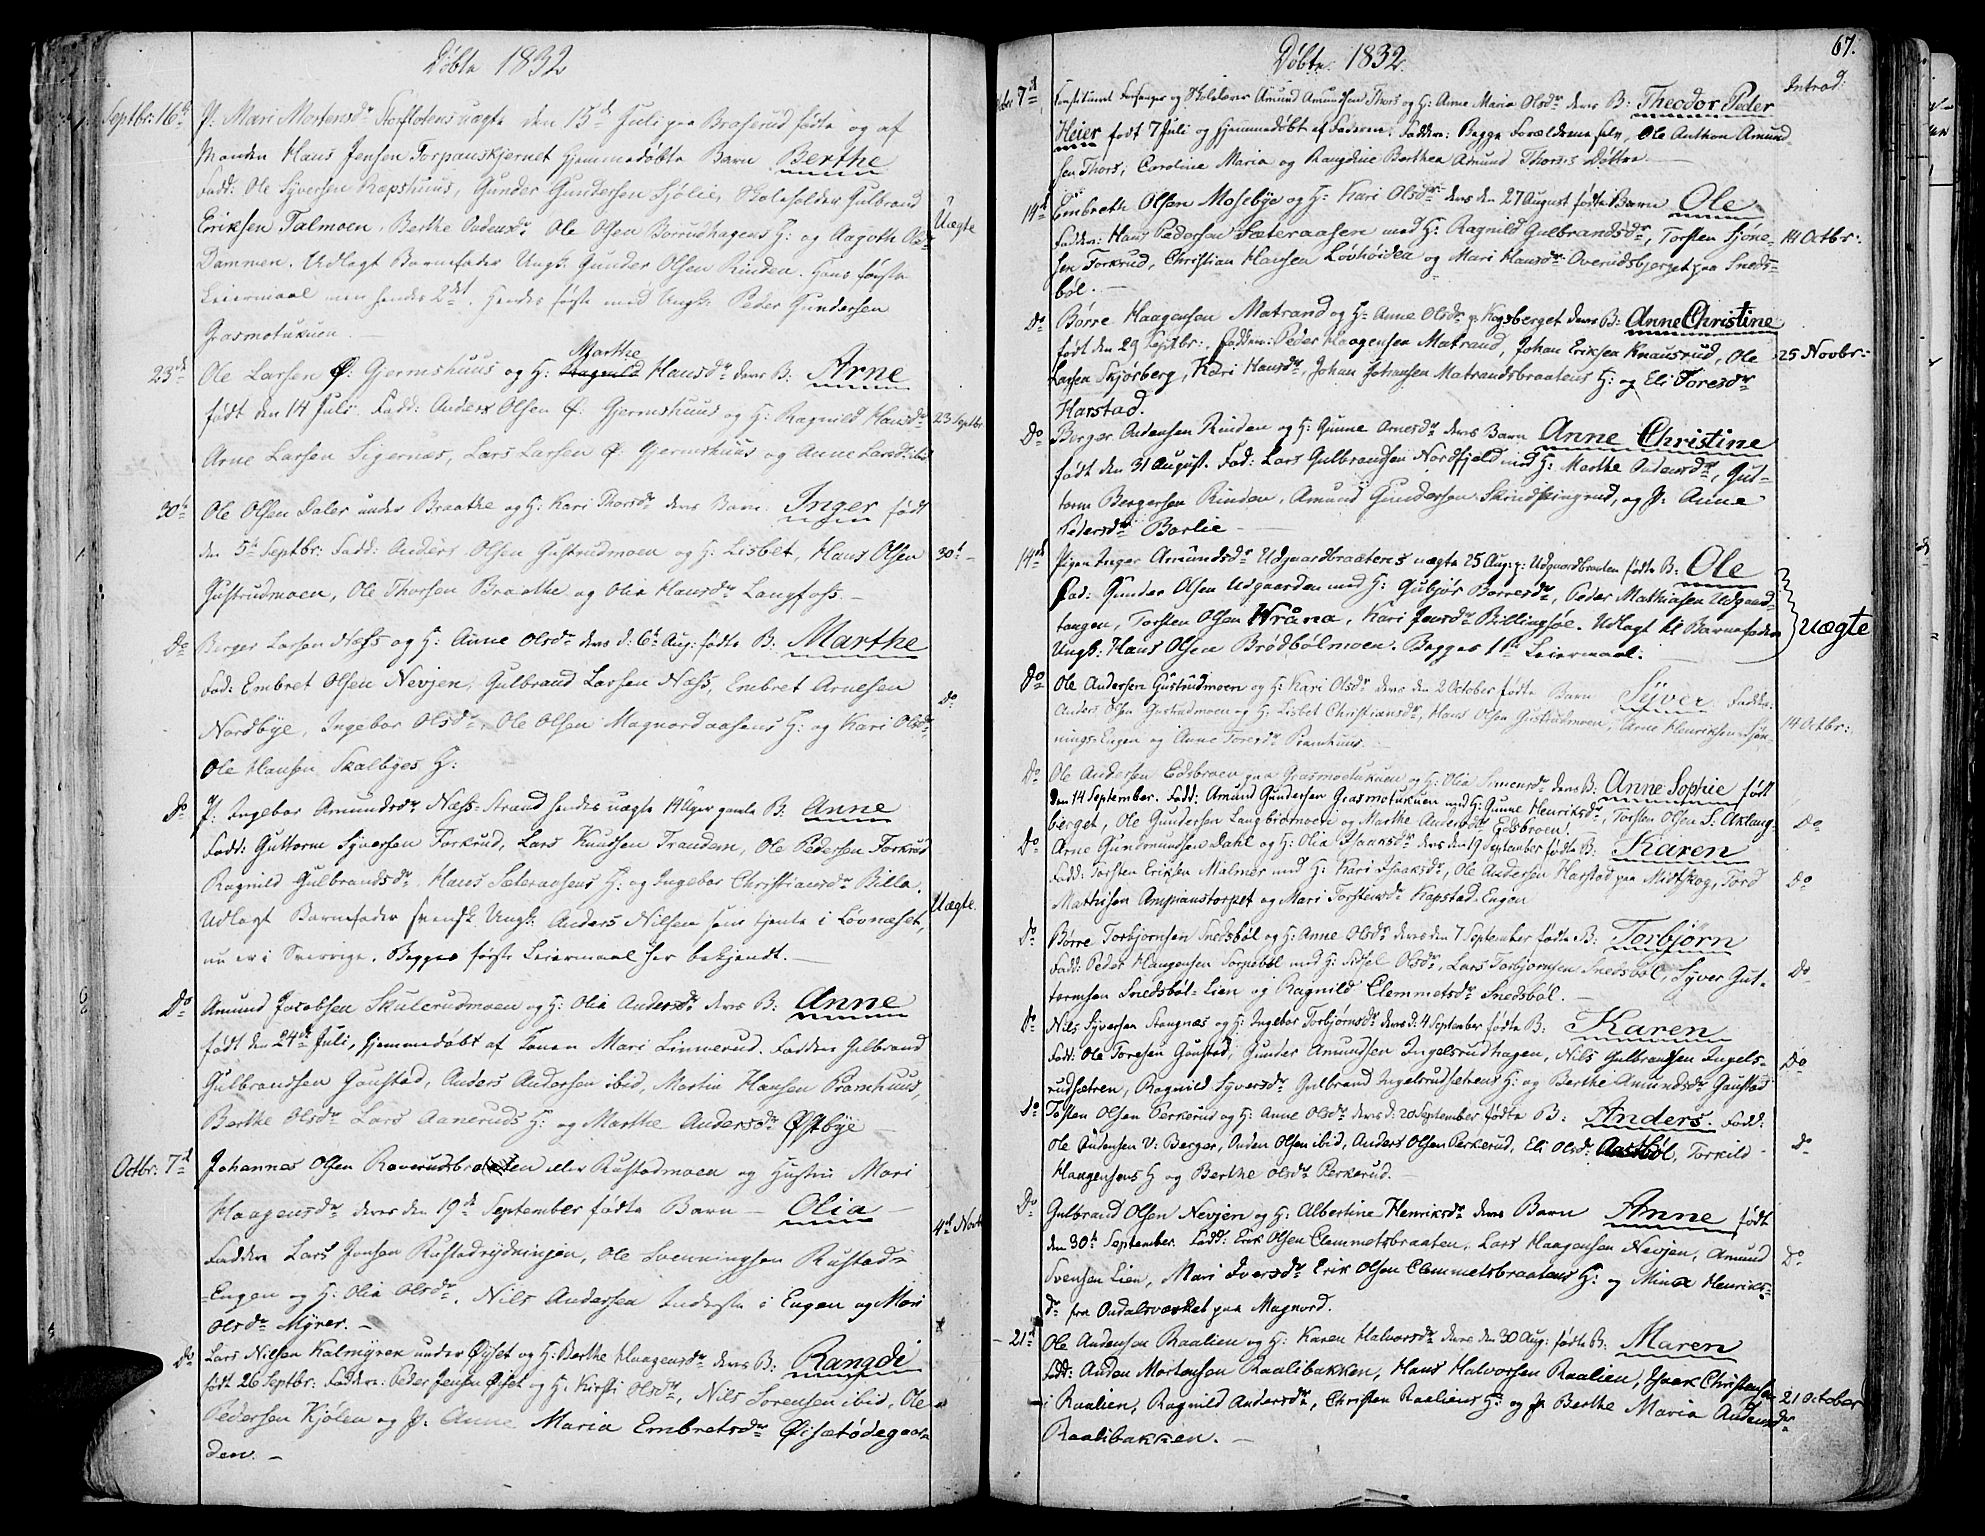 Døbte 1832
Septbr: 16d P: Mari Mortensdr Storslotens uægte den 15d Juli paa Braserud fødte og af
Manden Hans Jensen Torpanskjernet hjemmedøbte Barn Berthe
Fadd: Ole Syversen Rapshuus, Gunder Gundersen Sjølie, Skoleholder Gulbrand
Eriksen Talmoen, Berthe Audensdr Ole Olsen Borrudhagens H: og Aagoth Olsdr Uægte
Dammen. Udlagt Barnefader Ungk: Gunder Olsen Rinden. Hans første
Leiermaal men hendes 2det. Hendes første med Ungk: Peder Gundersen
Grasmotukuen.
Marthe
23de Ole Larsen Ø: Gjermshuus og H: Hansdr deres B: Arne
født den 14 Juli. Fadd: Anders Olsen Ø: Gjermshuus og H: Ragnild Hansdr 23 Septbr
Arne Larsen Sigernæs, Lars Larsen Ø: Gjermshuus og Anne Larsdr ibid
30te Ole Olsen Daler under Braathe og H: Kari Thorsdr deres Barn Inger født
den 5te Septbr: Fadd: Anders Olsen Gustrudmoen og H: Lisbet, Hans Olsen 30t
Gustrudmoen, Ole Thorsen Braathe og Olia Hansdr Langfoss.
Do Berger Larsen Næss og H: Anne Olsdr deres d: 6t Aug: fødte B: Marthe
Fad: Embret Olsen Nevjen, Gulbrand Larsen Næss, Embret Arnesen Do
Nordbye, Ingebor Olsdr, Ole Olsen Magnordaasens H: og Kari Olsdr
Ole Hansen Skalbyes H:
Do P: Ingebor Amundsdr Næss-Strand hendes uægte 14 Uger gamle B: Anne
Fadd: Guttorm Syversen Torkrud, Lars Knudsen Trandem, Ole Pedersen Torkrud
Ragnild Gulbrandsdr, Hans Sæteraasens H: og Ingebor Christiansdr Billa. Uægte.
Udlagt Barnefader svensk Ungk: Anders Nilsen som tjente i Løvnæset,
nu er i Sverrige. Begges første Leiermaal her bekjendt.
Do Amund Jacobsen Skulerudmoen og H: Olia Andersdr deres B: Anne
født den 24de Juli, hjemmedøbt af Konen Mari Linnerud. Faddere Gulbrand
Gulbrandsen Gaustad, Anders Andersen ibid, Martin Hansen Pramhuus,
Berthe Olsdr Lars Aaneruds H: og Marthe Andersdr Østbye
Octbr: 7d Johannes Olsen Raverudsbraaten eller Rustadmoen og Hustru Mari
Haagensdr deres den 19de September fødte Barn Olia 4de Novb
Faddere Lars Jonsen Rustadrydningen, Ole Svenningsen Rustad-
Engen og H: Olia Olsdr, Nils Andersen Inderste i Engen og Mari
Olsdr Myrer.
Do Lars Nilsen Kalmyren under Øiset og H: Berthe Haagensdr deres B: Rangdi
født 26 Septbr: Faddere: Peder Jensen Øiset og H: Kirsti Olsdr, Nils Sorensen ibid, Ole
Pedersen Kjølen og P: Anne Maria Embretsdr Øisætødegaar
den.
Døbte 1832. 67.
Introd:
7d Constitueret Forsanger og Skolelærer Amund Amundsen Thors og H: Anne Maria Olsdr deres B: Theodor Peder
Heier født 7 Juli og hjemmedøbt af Faderen. Faddere: Begge Forældrene selv, Ole Anthon Amund
sen Thors, Caroline Maria og Rangdine Berthea Amund Thorses Døttre
14d Embreth Olsen Mosebye og H: Kari Olsdr deres den 27 August fødte Barn Ole
Faddere: Hans Pedersen Sæteraasen med H: Ragnild Gulbrandsdr, Torsten Sjøne- 14 Octbr:
sen Torkrud, Christian Hansen Løvhøiden og Mari Hansdr Overudsbjerget paa Sneds-
bøl.
Do Børre Haagensen Matrand og H: Anne Olsdr p: Kogsberget deres B: Anne Christine
født den 29 Septbr:, Faddere: Peder Haagensen Matrand, Johan Eriksen Knausrud, Ole 25 Novbr:
Larsen Skjørberg, Kari Hansdr, Johan Johansen Matrandsbraatens H: og Eli Toresdr
Harstad.
Do Berger Audensen Rinden og H: Gunne Arnesdr deres Barn Anne Christine
født den 31 August. Fad: Lars Gulbrandsen Nordfjeld med H: Marthe Audensdr, Gut-
torm Bergersen Rinden, Amund Gundersen Skindspingrud, og P: Anne
Pedersdr Barlie
14de Pigen Inger Amundsdr Udgaardbraatens uægte 25 Aug: p: Udgaardbraaten fødte B: Ole
Fad: Gunder Olsen Udgaarden med H: Gubjør Børresdr, Peder Mathiasen Udgaard-
tangen, Torsten Olsen Wråna, Kari Jensdr Billingsøe. Udlagt til Barnefader uægte
Ungk: Hans Olsen Brødbølmoen. Begges 1ste Leiermaal.
Do Ole Andersen Gustrudmoen og H: Kari Olsdr deres den 2 October fødte Barn Syver. Fadder:
Anders Olsen Gustrudmoen og H: Lisbet Christiansdr, Hans Olsen Gustrudmoen, Arne Henriksen Sjøn- 14 Octbr:
nings-Engen og Anne Toresdr Pramhuus.
Do Ole Andersen Eidsbroen paa Grasmotukuen og H: Olia Simensdr deres B: Anne Sophie født
den 14 September. Fadd: Amund Gundersen Grasmotukuen med H: Gunne Henriksdr, Torsten Olsen S: Axlang-
berget, Ole Gundersen Langbriemoen og Marthe Andersdr Eidsbroen. Do
Do Arne Gundmundsen Dahl og H: Olia Isaaksdr deres den 19 September fødte B: Karen
Fadd: Torsten Eriksen Malmer med H: Kari Isaaksdr, Ole Andersen Harstad paa Midtskog, Tord Do
Mathisen Ampianstorpet og Mari Torstensdr Kapstad-Engen
Do Børre Torbjørnsen Snedsbøl og H: Anne Olsdr deres den 7 September fødte B: Torbjørn
Fadd: Peder Haagensen Tornebøl med H: Sidsel Olsdr, Lars Torbjørnsen Snedsbøl, Syver Gut- Do
tormsen Snedsbøl-Lien og Ragnild Clemmetsdr Snedsbøl.
Do Nils Syversen Stangnæs og H: Ingebor Torbjørnsdr deres d: 4 September fødte B: Karen
Fad: Ole Toresen Gaustad, Gunder Amundsen Ingelsrudhagen, Nils Gulbrandsen Ingels- Do
rudsætren, Ragnild Syversdr Gulbrand Ingelsrudsætrens H: og Berthe Amundsdr Gaustad
Do Tosten Olsen Perkerud og H: Anne Olsdr deres d: 20 September fødte B: Anders. Fadd:
Ole Audensen V: Berger, Auden Olsen ibid, Anders Olsen Perkerud, Eli Olsdr Aastbøl, Torkild Do
Haagensens H og Berthe Olsdr Perkerud.
Do Gulbrand Olsen Nevjen og H: Albertine Henriksdr deres Barn Anne født
den 30t September. Fadd: Erik Olsen Clemmetsbraaten, Lars Haagensen Nevjen, Amund Do
Svensen Lien, Mari Iversdr Erik Olsen Clemmetsbraatens H: og Mina Henriks-
dr fra Oudalsværket paa Magnord.
21d Ole Audensen Raalien og H: Karen Halvorsdr deres den 30 Aug: fødte B: Maren
Fad: Auden Mortensen Raalibakken, Hans Halvorsen Raalien, Isaak Christensen
i Raalien, Ragnild Andersdr, Christen Raaliens H: og P: Berthe Maria Audensdr 21 October
Raalibakken.